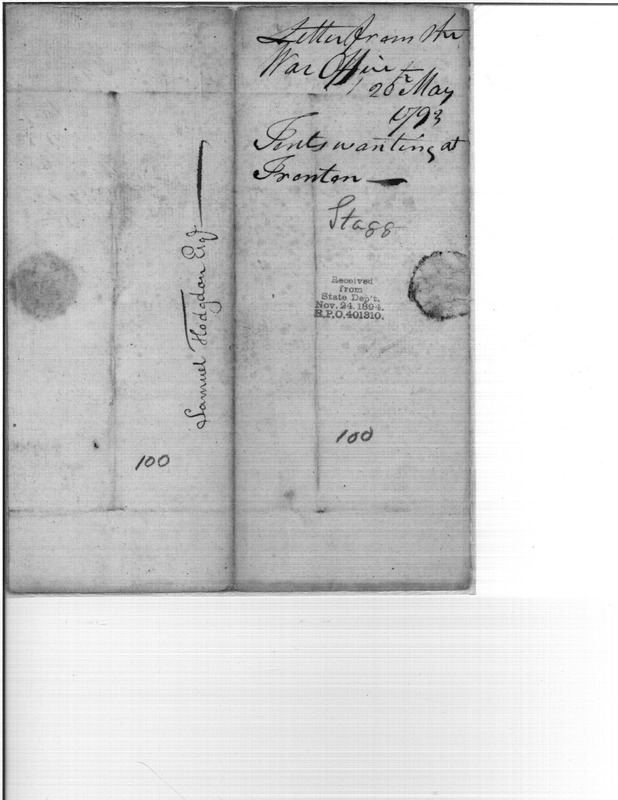 Letter from the
War Office
26th May
1793
Tents wanting at
Trenton —
Stagg
Received
from
State Dep't.
Nov. 24. 1894.
R.P.O. 401310.
Samuel Hodgdon Esqr —
100
100